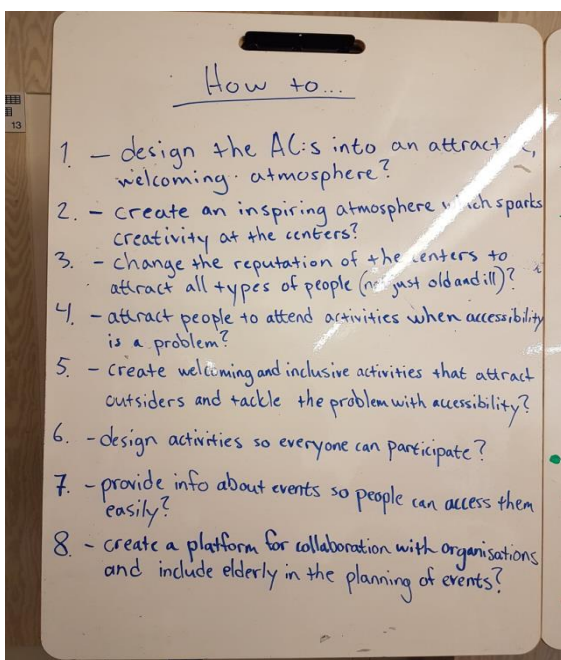 13
How to...
1 - design the AC:s into an attractive,
welcoming atmosphere?
2. - create an inspiring atmosphere which sparks
creativity at the centers?
3. - change the reputation of the centers to
attract all types of people (not just old and ill)?
4. - attract people to attend activities when accessibility
is a problem?
5. - create welcoming and inclusive activities that attract
outsiders and tackle the problem with accessibility?
6. - design activities so everyone can participate?
7. - provide info about events so people can access them
easily?
8 - create a platform for collaboration with organisations
and include elderly in the planning of events?